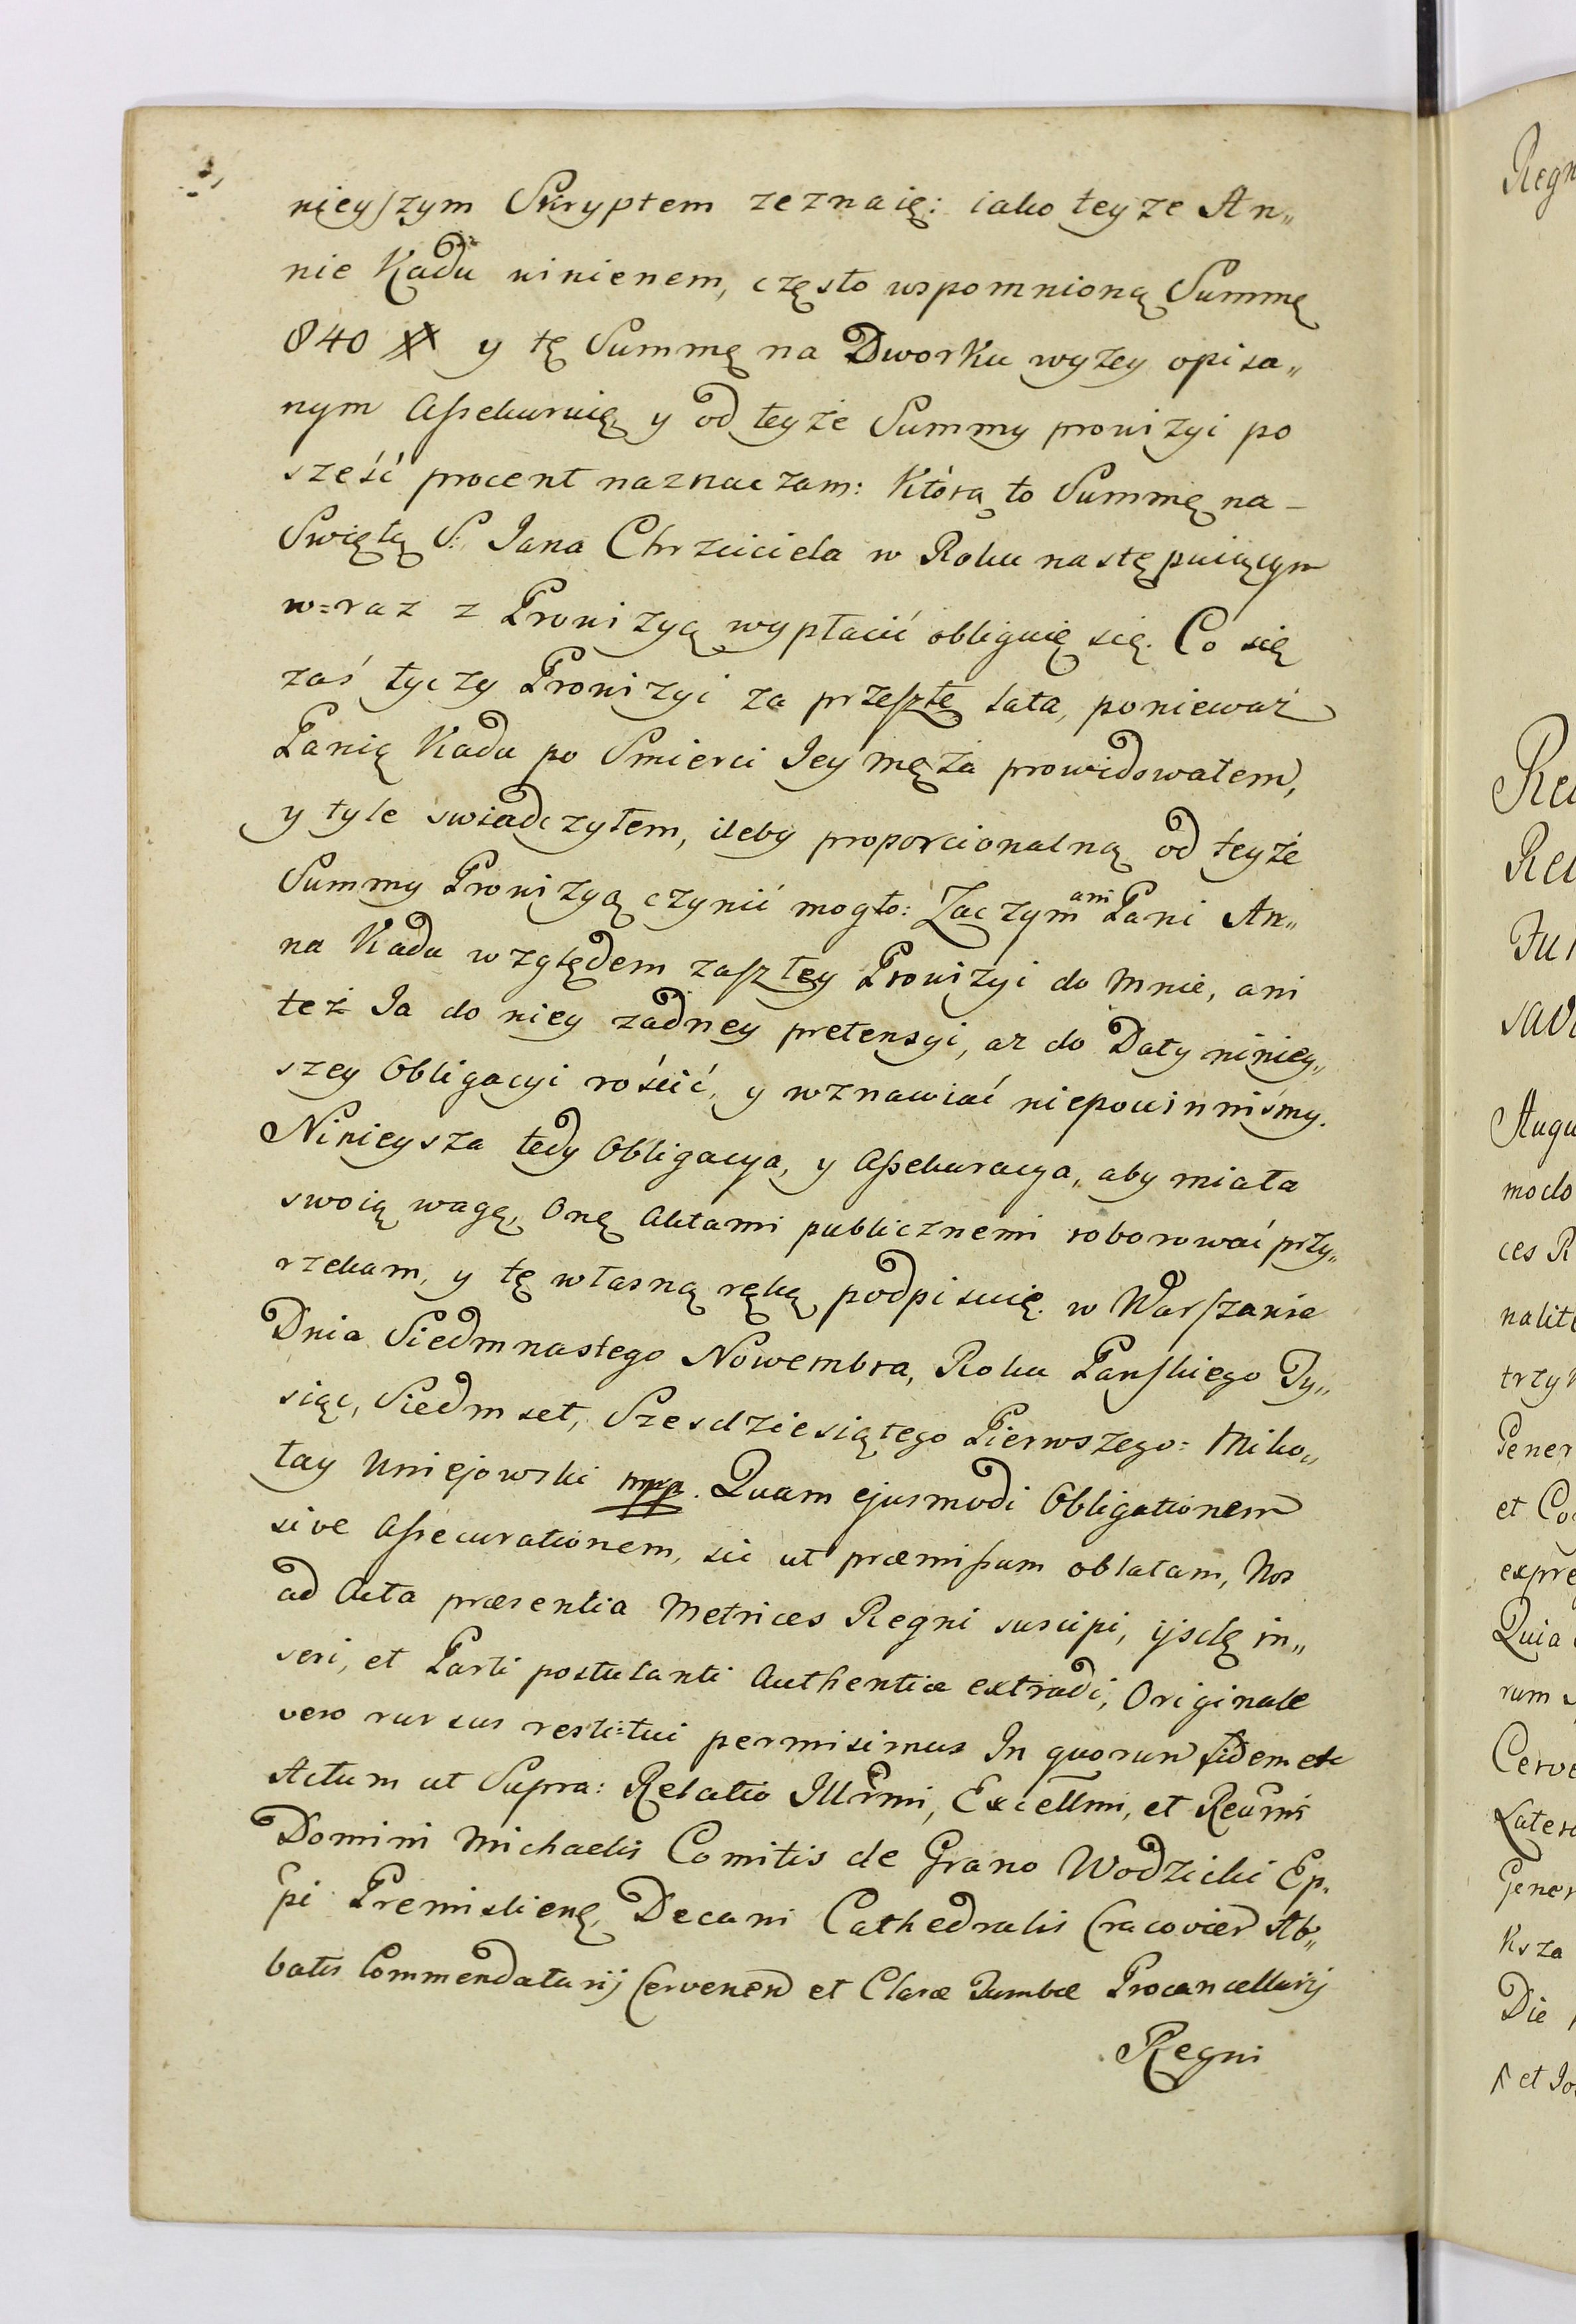 nięyszym Skryptem zeznaię: iako teyze An„
nie Kadu winienem, często wspomnioną Summę
840 xx y tę Summę na Dworku wyzey opisa„
nym Assekuruię y od teyże Summy prowizyi po
sześć procent naznaczam: Którą to Summę na_
Swiętą S: Jana Chrzciciela w Roku następuiącym
w=raz z Prowizyą wypłacić obliguię się. Co się
zaś tyczy Prowizyi za przeszłe lata, ponieważ
Panią Kadu po Smierci Jey męża prowidowałem,
y tyle swiadczyłem, ileby proporcionalną od teyże
Summy Prowizyą czynić mogło: Zaczym ani Pani An„
na Kadu względem zaszłey Prowizyi do mnie, ani
też Ja do niey zadney pretensyi, az do Daty niniey„
szey Obligacyi rościć, y wznawiać niepowinniśmy.
Ninieysza tedy Obligacya, y Assekuracya, aby miała
swoią wagę, Onę Aktami publicznemi roborować przy„
rzekam, y tę własną ręką podpisuię. w Warszawie
Dnia Siedmnastego Nowembra, Roku Panskiego Ty„
siąc, Siedmset, Szesdziesiątego Pierwszego: Miko„
łay Uniejowski mpp. Quam ejusmodi Obligationem
sive Assecurationem, sic ut præmissum oblatam, Nos
ad Acta præsentia Metrices Regni suscipi, ijsdę in„
seri, et Parti postulanti Authenticæ extradi, Originale
vero rursus resti=tui permisimus In quorum fidem etc
Actum ut Supra: Relatio Illrmi, Excellmi, et Reurmi
Domini Michaelis Comitis de Grano Wodzicki Ep.
pi Premislienę, Decani Cathedralis Cracovien Ab„
batis Commendatarij Cervenen et Claræ Tumbæ Procancellarij
Regni